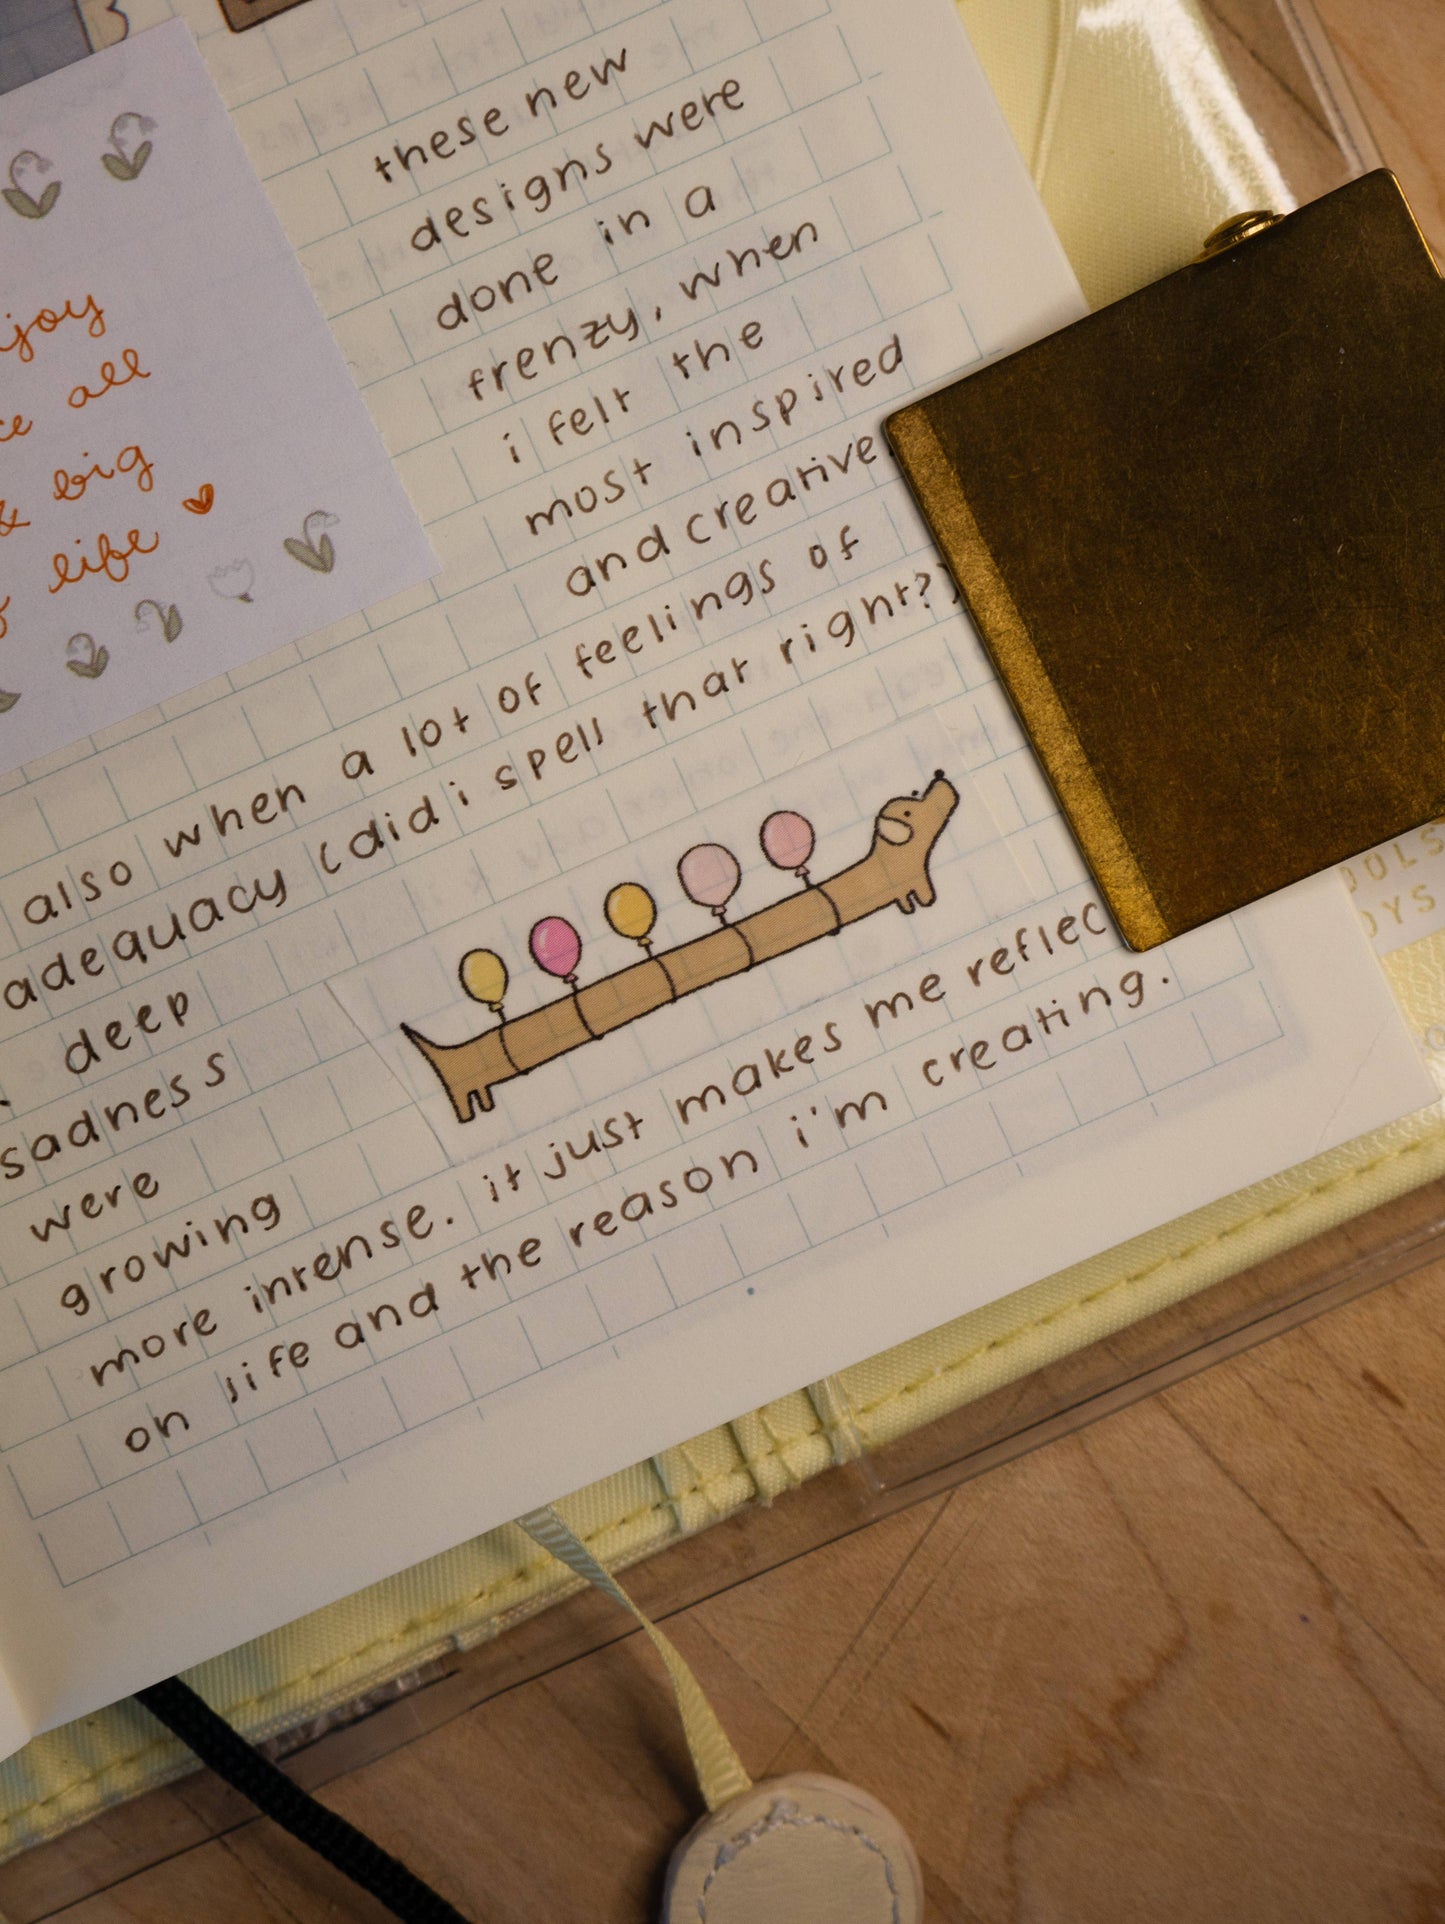 these new
designs were
done in a
frenzy, when
i felt the
most inspired
and creative.
also when a lot of feelings of
adequacy (did i spell that right?)
deep
sadness
were
growing
more intense. it just makes me reflec
on life and the reason i'm creating.
joy
all
& big
life
OOLS
OYS